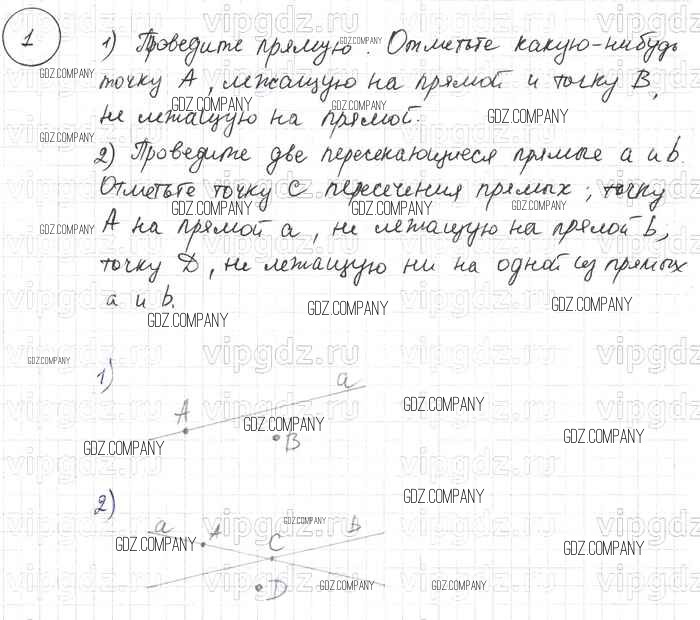 1
1) Проведите прямую. Отметьте какую-нибудь
точку А, лежащую на прямой и точку В,
не лежащую на прямой.
2) Проведите две пересекающиеся прямые a и b.
Отметьте точку С пересечения прямых; точку
А на прямой a, не лежащую на прямой b,
точку D, не лежащую ни на одной из прямых
a и b.
1)
a
A
B
2)
a A b
C
D
GDZ.COMPANY
vipgdz.ru